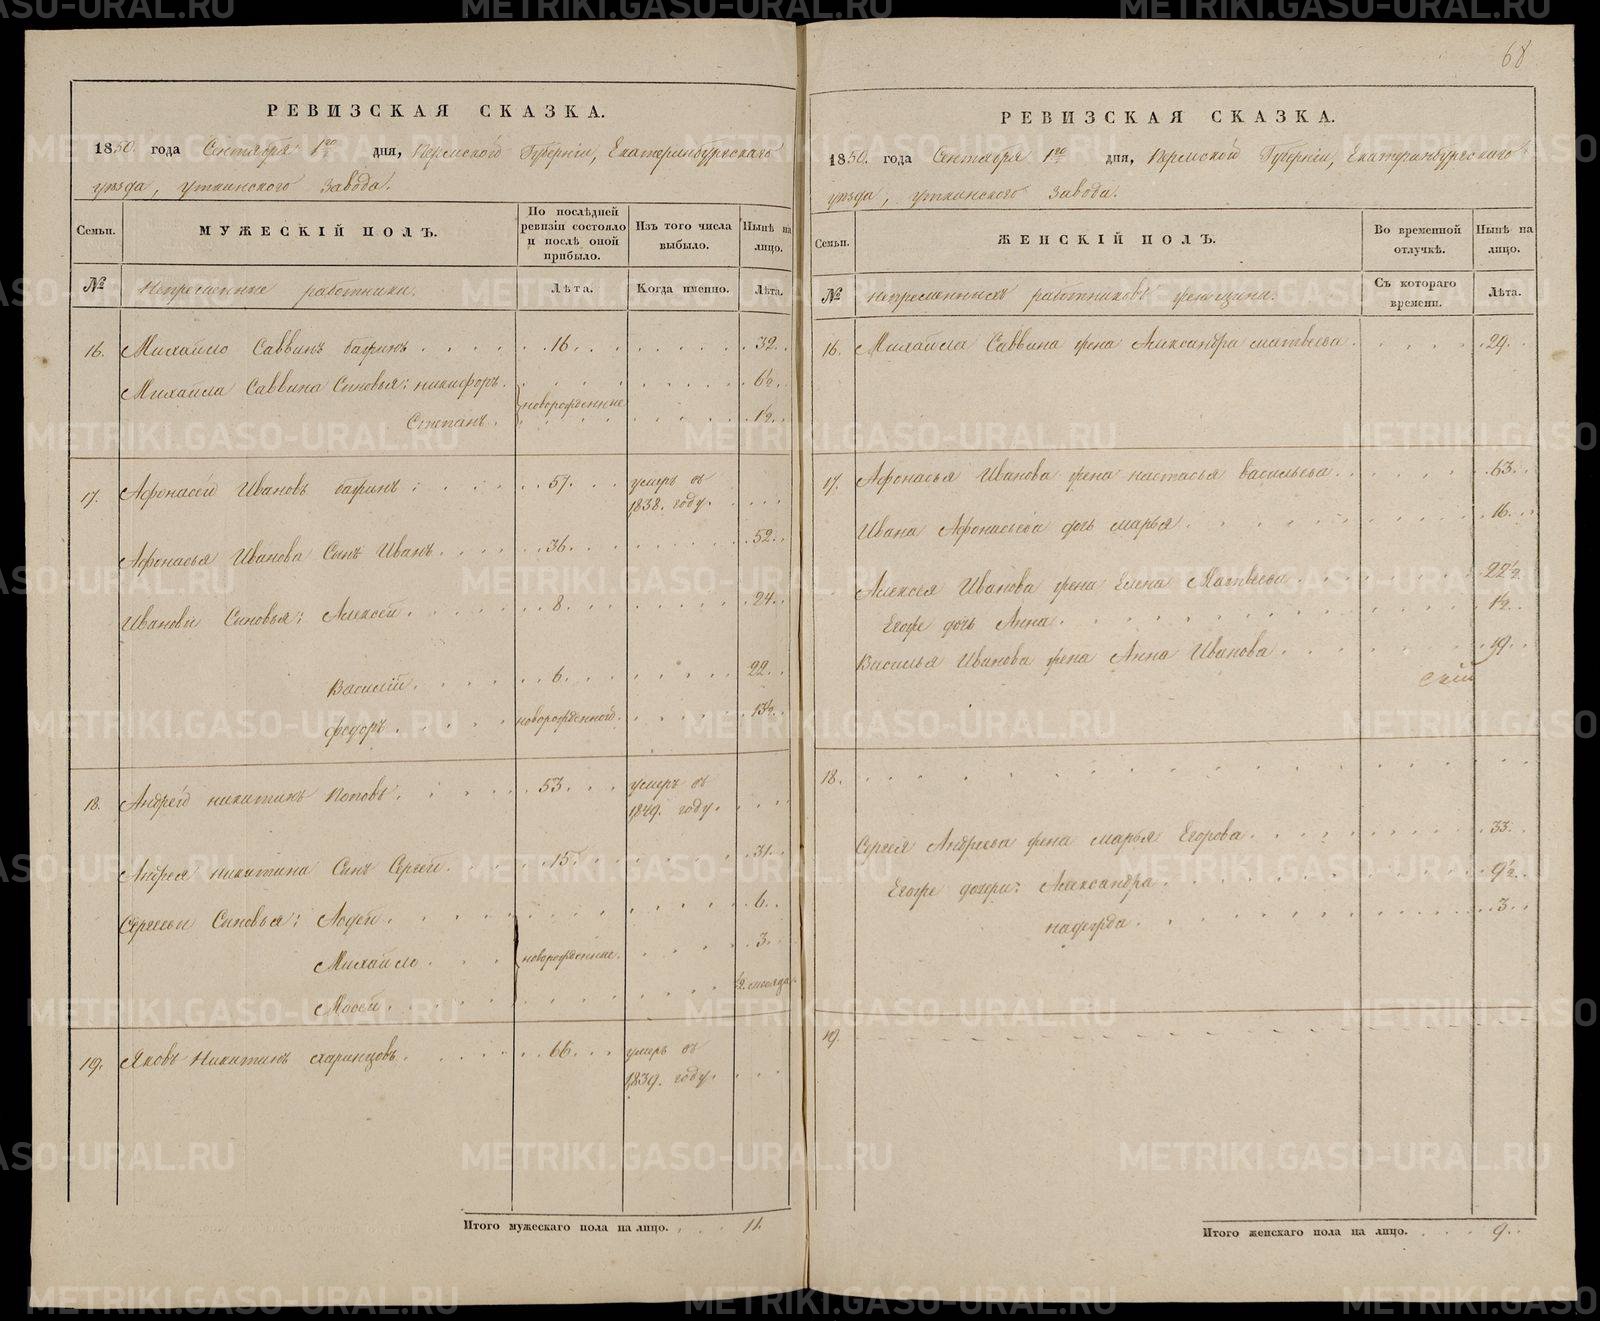 68
РЕВИЗСКАЯ СКАЗКА.
1850. года Сентября 1го дня, Пермской Губерніи, Екатеринбургскаго
уѣзда, Уткинскаго Завода.
Семьи. МУЖЕСКІЙ ПОЛЪ. По послѣдней ревизіи состояло и послѣ оной прибыло. Изъ того числа выбыло. Нынѣ на лицо.
№ Непременные работники. Лѣта. Когда именно. Лѣта.
16. Михайло Саввинъ 16. 32.
Михайла Саввина Сыновья: Никифоръ. 6½.
новорожденные
Степанъ. 1½.
17. Афонасей Ивановъ 57. умеръ въ 1838. году.
Афонасья Иванова Сынъ Иванъ. 36. 52.
Ивановы Сыновья: Алексей. 8. 24.
Василій. 6. 22.
Федоръ. новорожденной. 13½.
18. Андрей Никитинъ Поповъ. 53. умеръ въ 1849. году.
Андрея Никитина Сынъ Сергей. 15. 31.
Сергеевы Сыновья: 6.
Михайло. новорожденные. 3.
Мосей. ½. месяца
19. Яковъ Никитинъ 66. умеръ въ 1839. году.
Итого мужескаго пола на лицо. 11.
РЕВИЗСКАЯ СКАЗКА.
1850. года Сентября 1го дня, Пермской Губерніи, Екатеринбургскаго
уѣзда, Уткинскаго Завода.
Семьи. ЖЕНСКІЙ ПОЛЪ. Во временной отлучкѣ. Нынѣ на лицо.
№ Непременныхъ работниковъ женщины. Съ котораго времени. Лѣта.
16. Михайла Саввина жена Александра Матвеева. 29.
17. Афонасья Иванова жена Настасья Васильева. 63.
Ивана Афонасьева дочь Марья. 16.
Алексея Иванова жена Елена Матвеева. 22½.
Егоже дочь Анна. 1½.
Василья Иванова жена Анна Иванова. 19.
18.
Сергея Андреева жена Марья Егорова. 33.
Егоже дочери: Александра. 9½.
Надежда. 3.
19.
Итого женскаго пола на лицо. 9.
METRIKI.GASO-URAL.RU